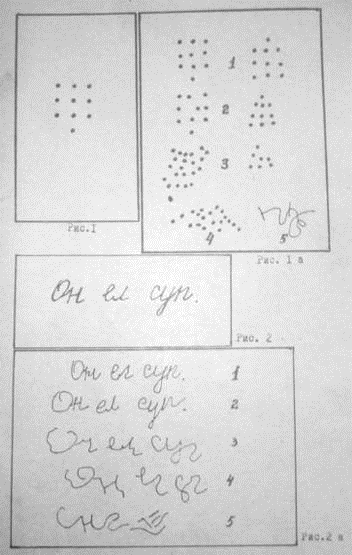 1
2
3
4 5
Рис.1
Рис. 1 а
Он ел суп.
Рис. 2
Он ел суп. 1
Он ел суп. 2
3
4
5
Рис.2 а